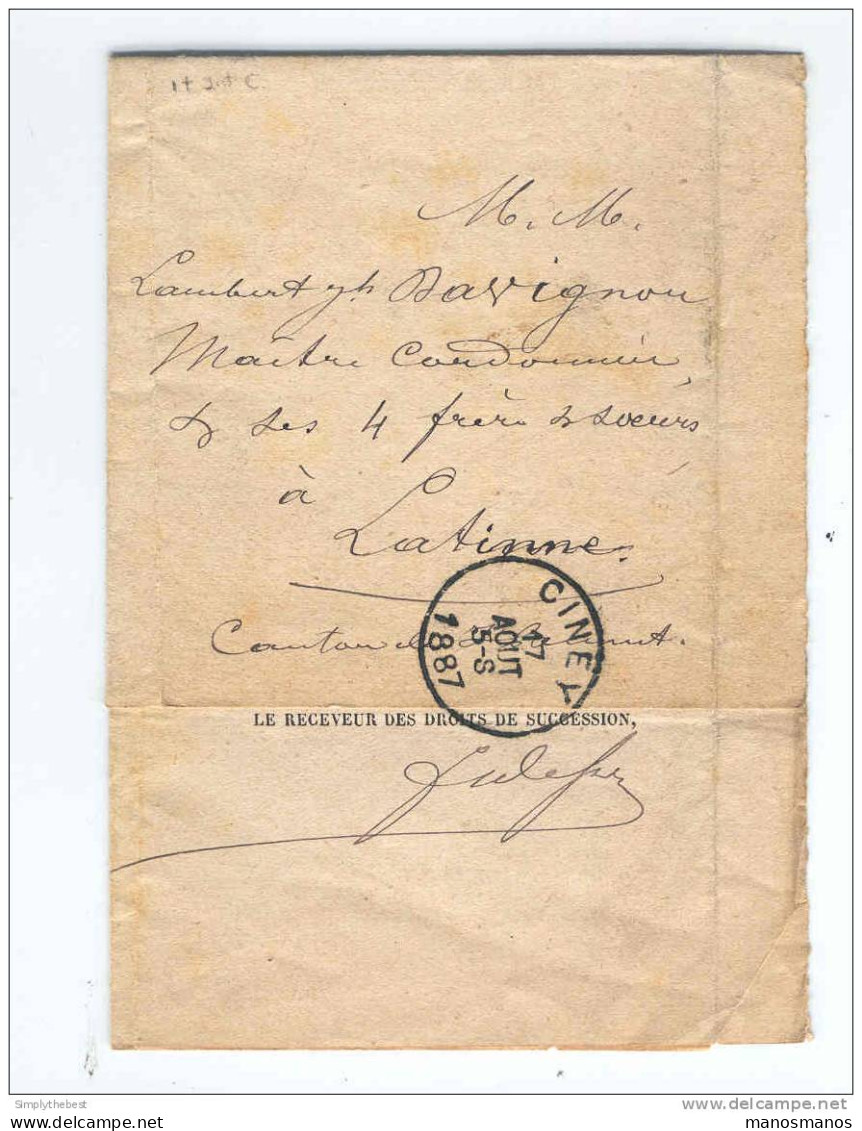 M. M.
Lambert Jh Davignon
Maître Cordonnier,
& ses 4 frères & soeurs
à
Latinne.
Canton de
CINEY
17
AOUT
5-S
1887
LE RECEVEUR DES DROITS DE SUCCESSION,
Simplythebest
delcampe.net
manosmanos